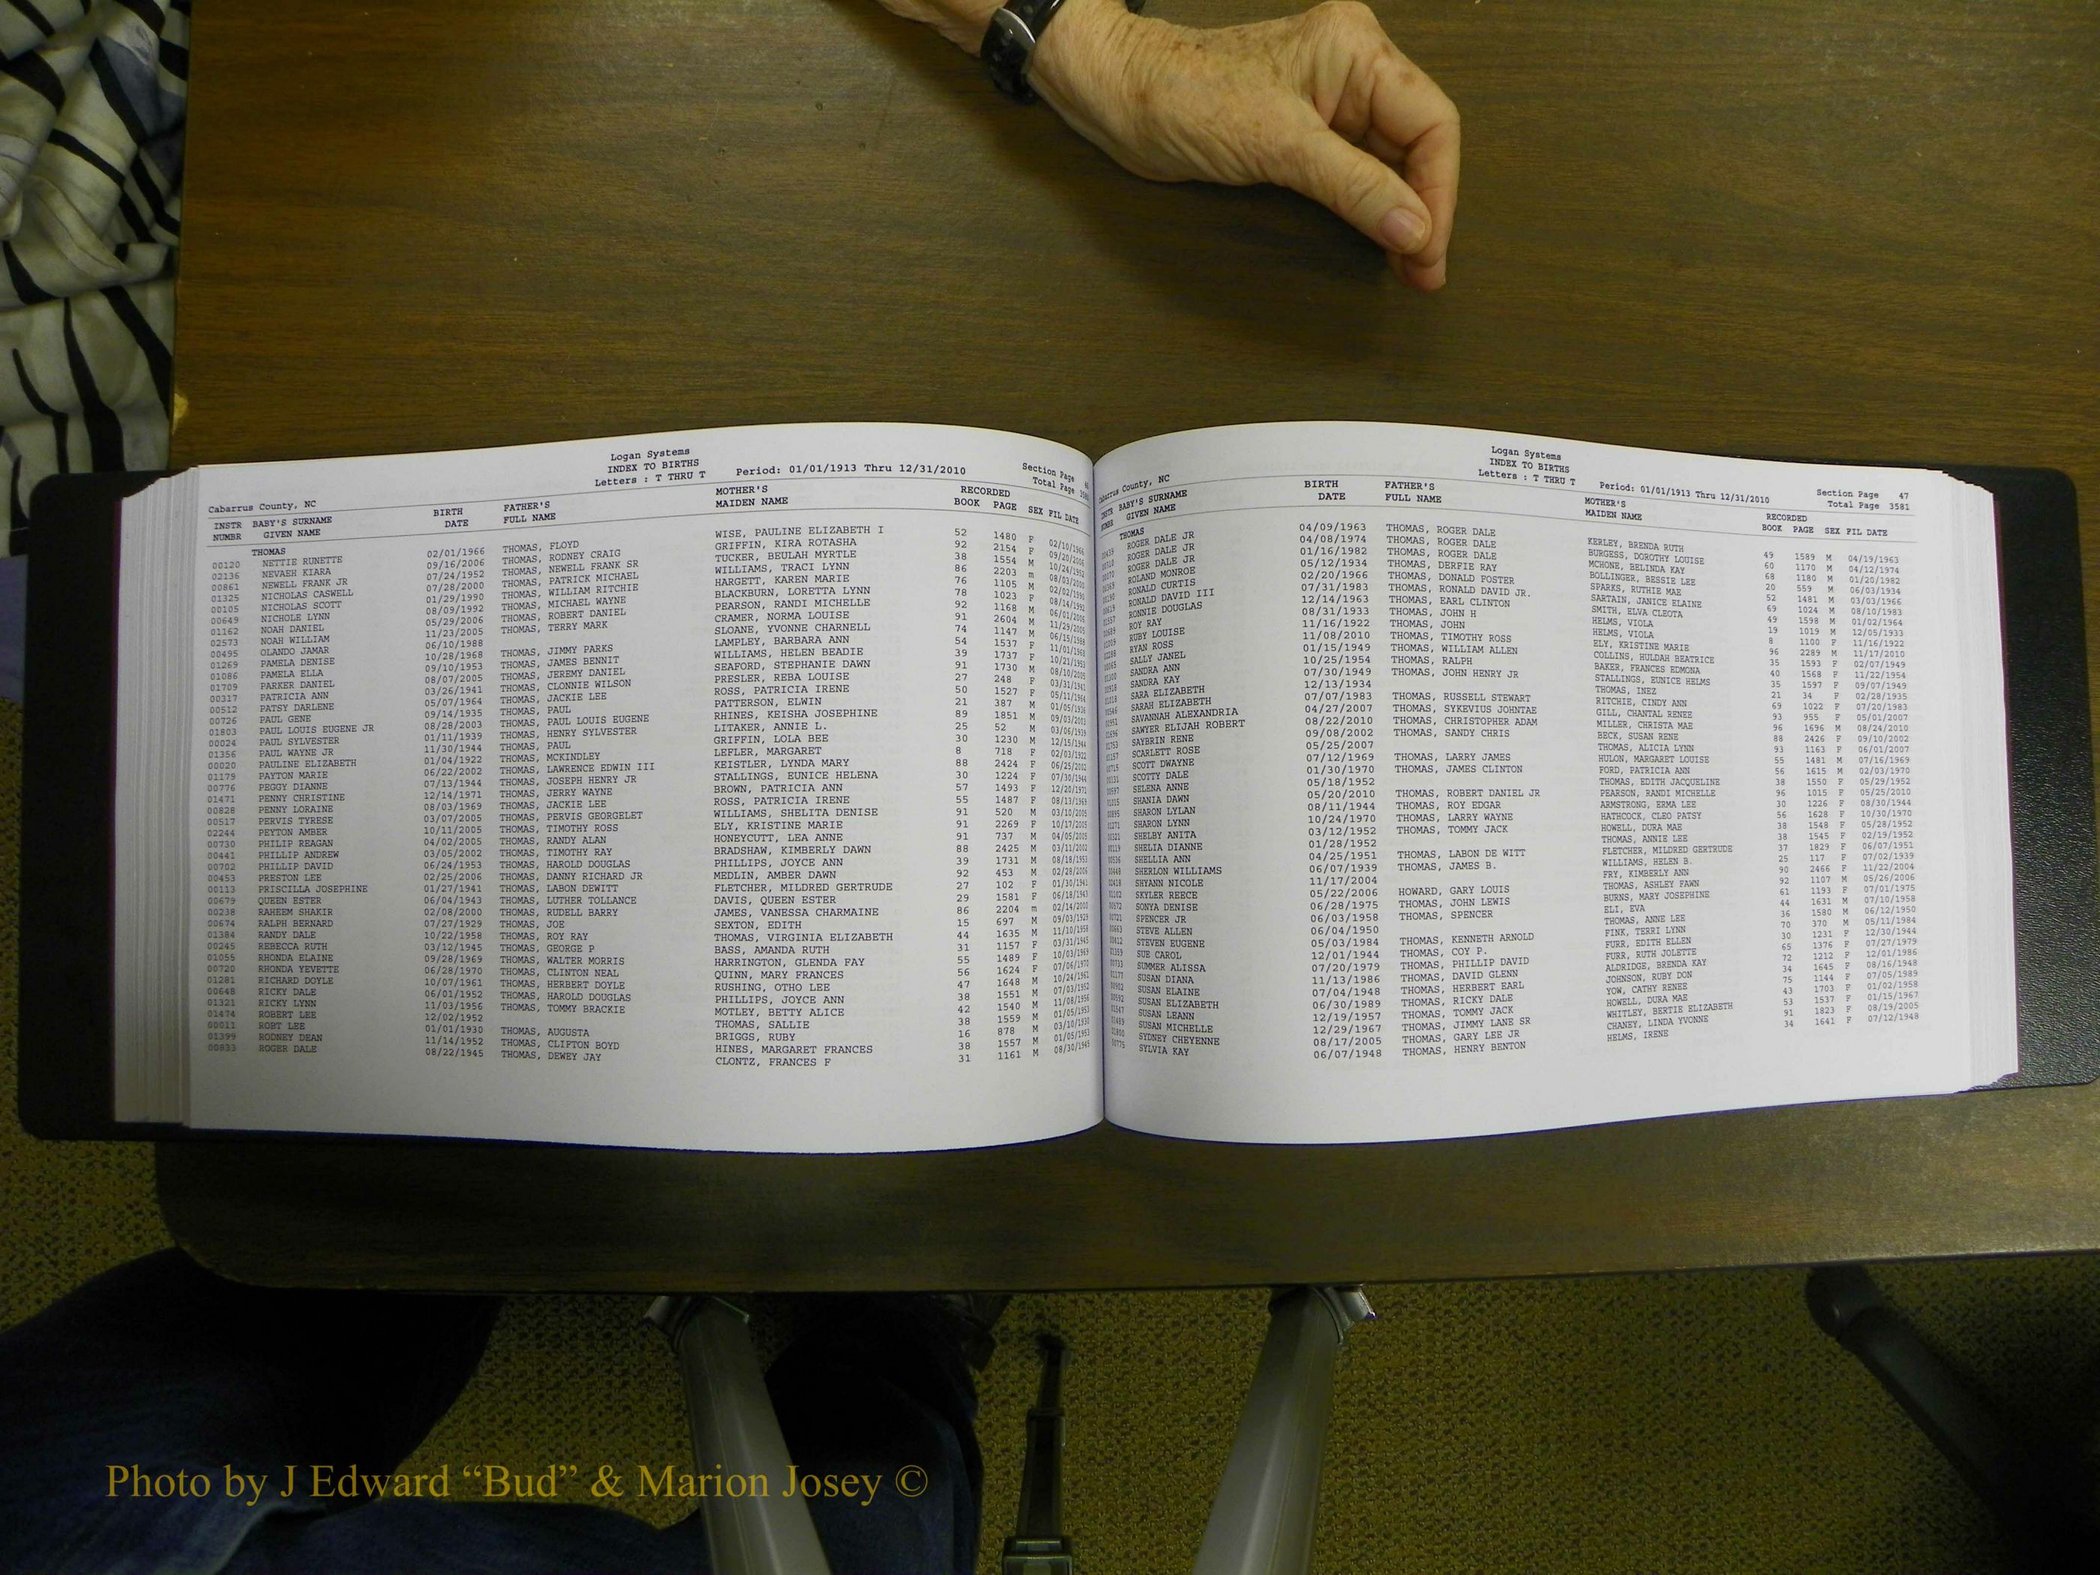 Logan Systems
INDEX TO BIRTHS
Letters : T THRU T Period: 01/01/1913 Thru 12/31/2010
Section Page 46
Total Page
Cabarrus County, NC
INSTR BABY'S SURNAME BIRTH FATHER'S MOTHER'S RECORDED
NUMBR GIVEN NAME DATE FULL NAME MAIDEN NAME BOOK PAGE SEX FIL DATE
THOMAS
00120 NETTIE RUNETTE 02/01/1966 THOMAS, FLOYD WISE, PAULINE ELIZABETH I 52 1480 F 02/10/1966
02136 NEVAEH KIARA 09/16/2006 THOMAS, RODNEY CRAIG GRIFFIN, KIRA ROTASHA 92 2154 F 09/20/2006
00861 NEWELL FRANK JR 07/24/1952 THOMAS, NEWELL FRANK SR TUCKER, BEULAH MYRTLE 38 1554 M 10/24/1952
01325 NICHOLAS CASWELL 07/28/2000 THOMAS, PATRICK MICHAEL WILLIAMS, TRACI LYNN 86 2203 m 08/03/2000
00105 NICHOLAS SCOTT 01/29/1990 THOMAS, WILLIAM RITCHIE HARGETT, KAREN MARIE 76 1105 M 02/02/1990
00649 NICHOLE LYNN 08/09/1992 THOMAS, MICHAEL WAYNE BLACKBURN, LORETTA LYNN 78 1023 F 08/14/1992
01162 NOAH DANIEL 05/29/2006 THOMAS, ROBERT DANIEL PEARSON, RANDI MICHELLE 92 1168 M 06/01/2006
02573 NOAH WILLIAM 11/23/2005 THOMAS, TERRY MARK CRAMER, NORMA LOUISE 91 2604 M 11/29/2005
00495 OLANDO JAMAR 06/10/1988 SLOANE, YVONNE CHARNELL 74 1147 M 06/15/1988
01269 PAMELA DENISE 10/28/1968 THOMAS, JIMMY PARKS LAMPLEY, BARBARA ANN 54 1537 F 11/01/1968
01086 PAMELA ELLA 09/10/1953 THOMAS, JAMES BENNIT WILLIAMS, HELEN BEADIE 39 1737 F 10/21/1953
01709 PARKER DANIEL 08/07/2005 THOMAS, JEREMY DANIEL SEAFORD, STEPHANIE DAWN 91 1730 M 08/10/2005
00317 PATRICIA ANN 03/26/1941 THOMAS, CLONNIE WILSON PRESLER, REBA LOUISE 27 248 F 03/31/1941
00512 PATSY DARLENE 05/07/1964 THOMAS, JACKIE LEE ROSS, PATRICIA IRENE 50 1527 F 05/11/1964
00726 PAUL GENE 09/14/1935 THOMAS, PAUL PATTERSON, ELWIN 21 387 M 01/05/1936
01803 PAUL LOUIS EUGENE JR 08/28/2003 THOMAS, PAUL LOUIS EUGENE RHINES, KEISHA JOSEPHINE 89 1851 M 09/03/2003
00024 PAUL SYLVESTER 01/11/1939 THOMAS, HENRY SYLVESTER LITAKER, ANNIE L. 25 52 M 03/06/1939
01356 PAUL WAYNE JR 11/30/1944 THOMAS, PAUL GRIFFIN, LOLA BEE 30 1230 M 12/15/1944
00020 PAULINE ELIZABETH 01/04/1922 THOMAS, MCKINDLEY LEFLER, MARGARET 8 718 F 02/03/1922
01179 PAYTON MARIE 06/22/2002 THOMAS, LAWRENCE EDWIN III KEISTLER, LYNDA MARY 88 2424 F 06/25/2002
00776 PEGGY DIANNE 07/13/1944 THOMAS, JOSEPH HENRY JR STALLINGS, EUNICE HELENA 30 1224 F 07/30/1944
01471 PENNY CHRISTINE 12/14/1971 THOMAS, JERRY WAYNE BROWN, PATRICIA ANN 57 1493 F 12/20/1971
00828 PENNY LORAINE 08/03/1969 THOMAS, JACKIE LEE ROSS, PATRICIA IRENE 55 1487 F 08/13/1969
00517 PERVIS TYRESE 03/07/2005 THOMAS, PERVIS GEORGELET WILLIAMS, SHELITA DENISE 91 520 M 03/10/2005
02244 PEYTON AMBER 10/11/2005 THOMAS, TIMOTHY ROSS ELY, KRISTINE MARIE 91 2269 F 10/17/2005
00730 PHILIP REAGAN 04/02/2005 THOMAS, RANDY ALAN HONEYCUTT, LEA ANNE 91 737 M 04/05/2005
00441 PHILLIP ANDREW 03/05/2002 THOMAS, TIMOTHY RAY BRADSHAW, KIMBERLY DAWN 88 2425 M 03/11/2002
00702 PHILLIP DAVID 06/24/1953 THOMAS, HAROLD DOUGLAS PHILLIPS, JOYCE ANN 39 1731 M 08/18/1953
00453 PRESTON LEE 02/25/2006 THOMAS, DANNY RICHARD JR MEDLIN, AMBER DAWN 92 453 M 02/28/2006
00113 PRISCILLA JOSEPHINE 01/27/1941 THOMAS, LABON DEWITT FLETCHER, MILDRED GERTRUDE 27 102 F 01/30/1941
00679 QUEEN ESTER 06/04/1943 THOMAS, LUTHER TOLLANCE DAVIS, QUEEN ESTER 29 1581 F 06/18/1943
00238 RAHEEM SHAKIR 02/08/2000 THOMAS, RUDELL BARRY JAMES, VANESSA CHARMAINE 86 2204 m 02/14/2000
00674 RALPH BERNARD 07/27/1929 THOMAS, JOE SEXTON, EDITH 15 697 M 09/03/1929
01384 RANDY DALE 10/22/1958 THOMAS, ROY RAY THOMAS, VIRGINIA ELIZABETH 44 1635 M 11/10/1958
00245 REBECCA RUTH 03/12/1945 THOMAS, GEORGE P BASS, AMANDA RUTH 31 1157 F 03/31/1945
01055 RHONDA ELAINE 09/28/1969 THOMAS, WALTER MORRIS HARRINGTON, GLENDA FAY 55 1489 F 10/03/1969
00720 RHONDA YEVETTE 06/28/1970 THOMAS, CLINTON NEAL QUINN, MARY FRANCES 56 1624 F 07/06/1970
01281 RICHARD DOYLE 10/07/1961 THOMAS, HERBERT DOYLE RUSHING, OTHO LEE 47 1648 M 10/24/1961
00648 RICKY DALE 06/01/1952 THOMAS, HAROLD DOUGLAS PHILLIPS, JOYCE ANN 38 1551 M 07/03/1952
01321 RICKY LYNN 11/03/1956 THOMAS, TOMMY BRACKIE MOTLEY, BETTY ALICE 42 1540 M 11/08/1956
01474 ROBERT LEE 12/02/1952 THOMAS, SALLIE 38 1559 M 01/05/1953
00011 ROBT LEE 01/01/1930 THOMAS, AUGUSTA BRIGGS, RUBY 16 878 M 03/10/1930
01399 RODNEY DEAN 11/14/1952 THOMAS, CLIFTON BOYD HINES, MARGARET FRANCES 38 1557 M 01/05/1953
00833 ROGER DALE 08/22/1945 THOMAS, DEWEY JAY CLONTZ, FRANCES F 31 1161 M 08/30/1945
Logan Systems
INDEX TO BIRTHS
Letters : T THRU T Period: 01/01/1913 Thru 12/31/2010
Section Page 47
Total Page 3581
Cabarrus County, NC
INSTR BABY'S SURNAME BIRTH FATHER'S MOTHER'S RECORDED
NUMBR GIVEN NAME DATE FULL NAME MAIDEN NAME BOOK PAGE SEX FIL DATE
THOMAS
ROGER DALE JR 04/09/1963 THOMAS, ROGER DALE KERLEY, BRENDA RUTH 49 1589 M 04/19/1963
ROGER DALE JR 04/08/1974 THOMAS, ROGER DALE BURGESS, DOROTHY LOUISE 60 1170 M 04/12/1974
ROGER DALE JR 01/16/1982 THOMAS, ROGER DALE MCHONE, BELINDA KAY 68 1180 M 01/20/1982
ROLAND MONROE 05/12/1934 THOMAS, DERFIE RAY BOLLINGER, BESSIE LEE 20 559 M 06/03/1934
RONALD CURTIS 02/20/1966 THOMAS, DONALD FOSTER SPARKS, RUTHIE MAE 52 1481 M 03/03/1966
RONALD DAVID III 07/31/1983 THOMAS, RONALD DAVID JR. SARTAIN, JANICE ELAINE 69 1024 M 08/10/1983
RONNIE DOUGLAS 12/14/1963 THOMAS, EARL CLINTON SMITH, ELVA CLEOTA 49 1598 M 01/02/1964
ROY RAY 08/31/1933 THOMAS, JOHN H HELMS, VIOLA 19 1019 M 12/05/1933
RUBY LOUISE 11/16/1922 THOMAS, JOHN HELMS, VIOLA 8 1100 F 11/16/1922
RYAN ROSS 11/08/2010 THOMAS, TIMOTHY ROSS ELY, KRISTINE MARIE 96 2289 M 11/17/2010
SALLY JANEL 01/15/1949 THOMAS, WILLIAM ALLEN COLLINS, HULDAH BEATRICE 35 1593 F 02/07/1949
SANDRA ANN 10/25/1954 THOMAS, RALPH BAKER, FRANCES EDMONA 40 1568 F 11/22/1954
SANDRA KAY 07/30/1949 THOMAS, JOHN HENRY JR STALLINGS, EUNICE HELMS 35 1597 F 09/07/1949
SARA ELIZABETH 12/13/1934 THOMAS, INEZ 21 34 F 02/28/1935
SARAH ELIZABETH 07/07/1983 THOMAS, RUSSELL STEWART RITCHIE, CINDY ANN 69 1022 F 07/20/1983
SAVANNAH ALEXANDRIA 04/27/2007 THOMAS, SYKEVIUS JOHNTAE GILL, CHANTAL RENEE 93 955 F 05/01/2007
SAWYER ELIJAH ROBERT 08/22/2010 THOMAS, CHRISTOPHER ADAM MILLER, CHRISTA MAE 96 1696 M 08/24/2010
SAYBRIN RENE 09/08/2002 THOMAS, SANDY CHRIS BECK, SUSAN RENE 88 2426 F 09/10/2002
SCARLETT ROSE 05/25/2007 THOMAS, ALICIA LYNN 93 1163 F 06/01/2007
SCOTT DWAYNE 07/12/1969 THOMAS, LARRY JAMES HULON, MARGARET LOUISE 55 1481 M 07/16/1969
SCOTTY DALE 01/30/1970 THOMAS, JAMES CLINTON FORD, PATRICIA ANN 56 1615 M 02/03/1970
SELENA ANNE 05/18/1952 THOMAS, EDITH JACQUELINE 38 1550 F 05/29/1952
SHANIA DAWN 05/20/2010 THOMAS, ROBERT DANIEL JR PEARSON, RANDI MICHELLE 96 1015 F 05/25/2010
SHARON LYLAN 08/11/1944 THOMAS, ROY EDGAR ARMSTRONG, ERMA LEE 30 1226 F 08/30/1944
SHARON LYNN 10/24/1970 THOMAS, LARRY WAYNE HATHCOCK, CLEO PATSY 56 1628 F 10/30/1970
SHELBY ANITA 03/12/1952 THOMAS, TOMMY JACK HOWELL, DURA MAE 38 1548 F 05/28/1952
SHELIA DIANNE 01/28/1952 THOMAS, ANNIE LEE 38 1545 F 02/19/1952
SHELLIA ANN 04/25/1951 THOMAS, LABON DE WITT FLETCHER, MILDRED GERTRUDE 37 1829 F 06/07/1951
SHERLON WILLIAMS 06/07/1939 THOMAS, JAMES B. WILLIAMS, HELEN B. 25 117 F 07/02/1939
SHYANN NICOLE 11/17/2004 FRY, KIMBERLY ANN 90 2466 F 11/22/2004
SKYLER REECE 05/22/2006 HOWARD, GARY LOUIS THOMAS, ASHLEY FAWN 92 1107 M 05/26/2006
SONYA DENISE 06/28/1975 THOMAS, JOHN LEWIS BURNS, MARY JOSEPHINE 61 1193 F 07/01/1975
SPENCER JR 06/03/1958 THOMAS, SPENCER ELI, EVA 44 1631 M 07/10/1958
STEVE ALLEN 06/04/1950 THOMAS, ANNE LEE 36 1580 M 06/12/1950
STEVEN EUGENE 05/03/1984 THOMAS, KENNETH ARNOLD FINK, TERRI LYNN 70 370 M 05/11/1984
SUE CAROL 12/01/1944 THOMAS, COY P. FURR, EDITH ELLEN 30 1231 F 12/30/1944
SUMMER ALISSA 07/20/1979 THOMAS, PHILLIP DAVID FURR, RUTH JOLETTE 65 1376 F 07/27/1979
SUSAN DIANA 11/13/1986 THOMAS, DAVID GLENN ALDRIDGE, BRENDA KAY 72 1212 F 12/01/1986
SUSAN ELAINE 07/04/1948 THOMAS, HERBERT EARL JOHNSON, RUBY DON 34 1645 F 08/16/1948
SUSAN ELIZABETH 06/30/1989 THOMAS, RICKY DALE YOW, CATHY RENEE 75 1144 F 07/05/1989
SUSAN LEANN 12/19/1957 THOMAS, TOMMY JACK HOWELL, DURA MAE 43 1703 F 01/02/1958
SUSAN MICHELLE 12/29/1967 THOMAS, JIMMY LANE SR WHITLEY, BERTIE ELIZABETH 53 1537 F 01/15/1967
SYDNEY CHEYENNE 08/17/2005 THOMAS, GARY LEE JR CHANEY, LINDA YVONNE 91 1823 F 08/19/2005
SYLVIA KAY 06/07/1948 THOMAS, HENRY BENTON HELMS, IRENE 34 1641 F 07/12/1948
Photo by J Edward “Bud” & Marion Josey ©